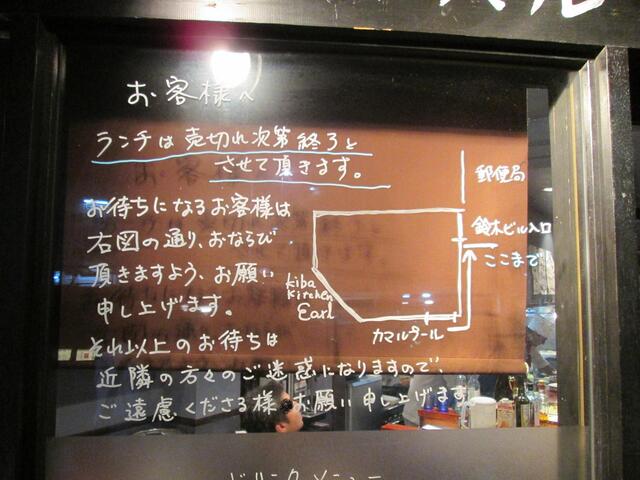 お客様へ
ランチは売切れ次第終了と
させて頂きます。
お待ちになるお客様は
右図の通り、おならび
頂きますよう、お願い
申し上げます。
それ以上のお待ちは
近隣の方々のご迷惑になりますので、
ご遠慮くださる様、お願い申し上げます。
郵便局
鈴木ビル入口
ここまで
kiba
kitchen
Earl
カマルプール
ドリンクメニュー